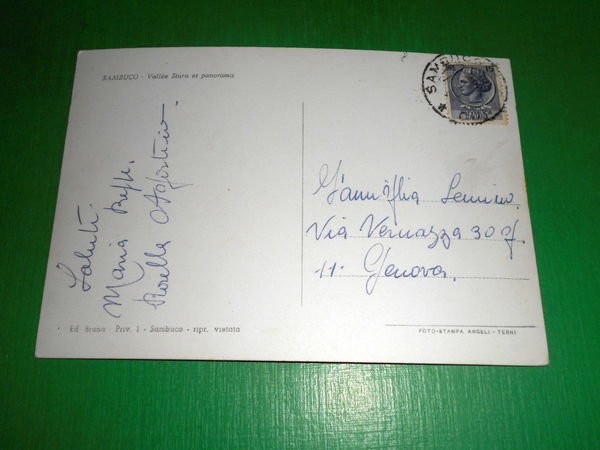 SAMBUCO - Vallée Stura et panorama
SAMBUCO
Saluti.
Maria Beppe.
Rosella Agostino.
Famiglia
Via Vernazza 30
11. Genova.
Ed. Bruna - Priv. 1 - Sambuco - ripr. vietata
FOTO-STAMPA ANGELI - TERNI